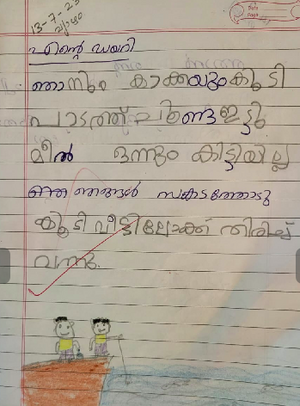 13-7-23
വ്യാഴം
എന്റെ ഡയറി
ഞാനും കാക്കയുംകൂടി
പാടത്ത് ചൂണ്ടഇട്ടു
മീൻ ഒന്നും കിട്ടിയില്ല
ഞങ്ങൾ സങ്കടത്തോടു
കൂടി വീട്ടിലേക്ക് തിരിച്ച്
വന്നു.